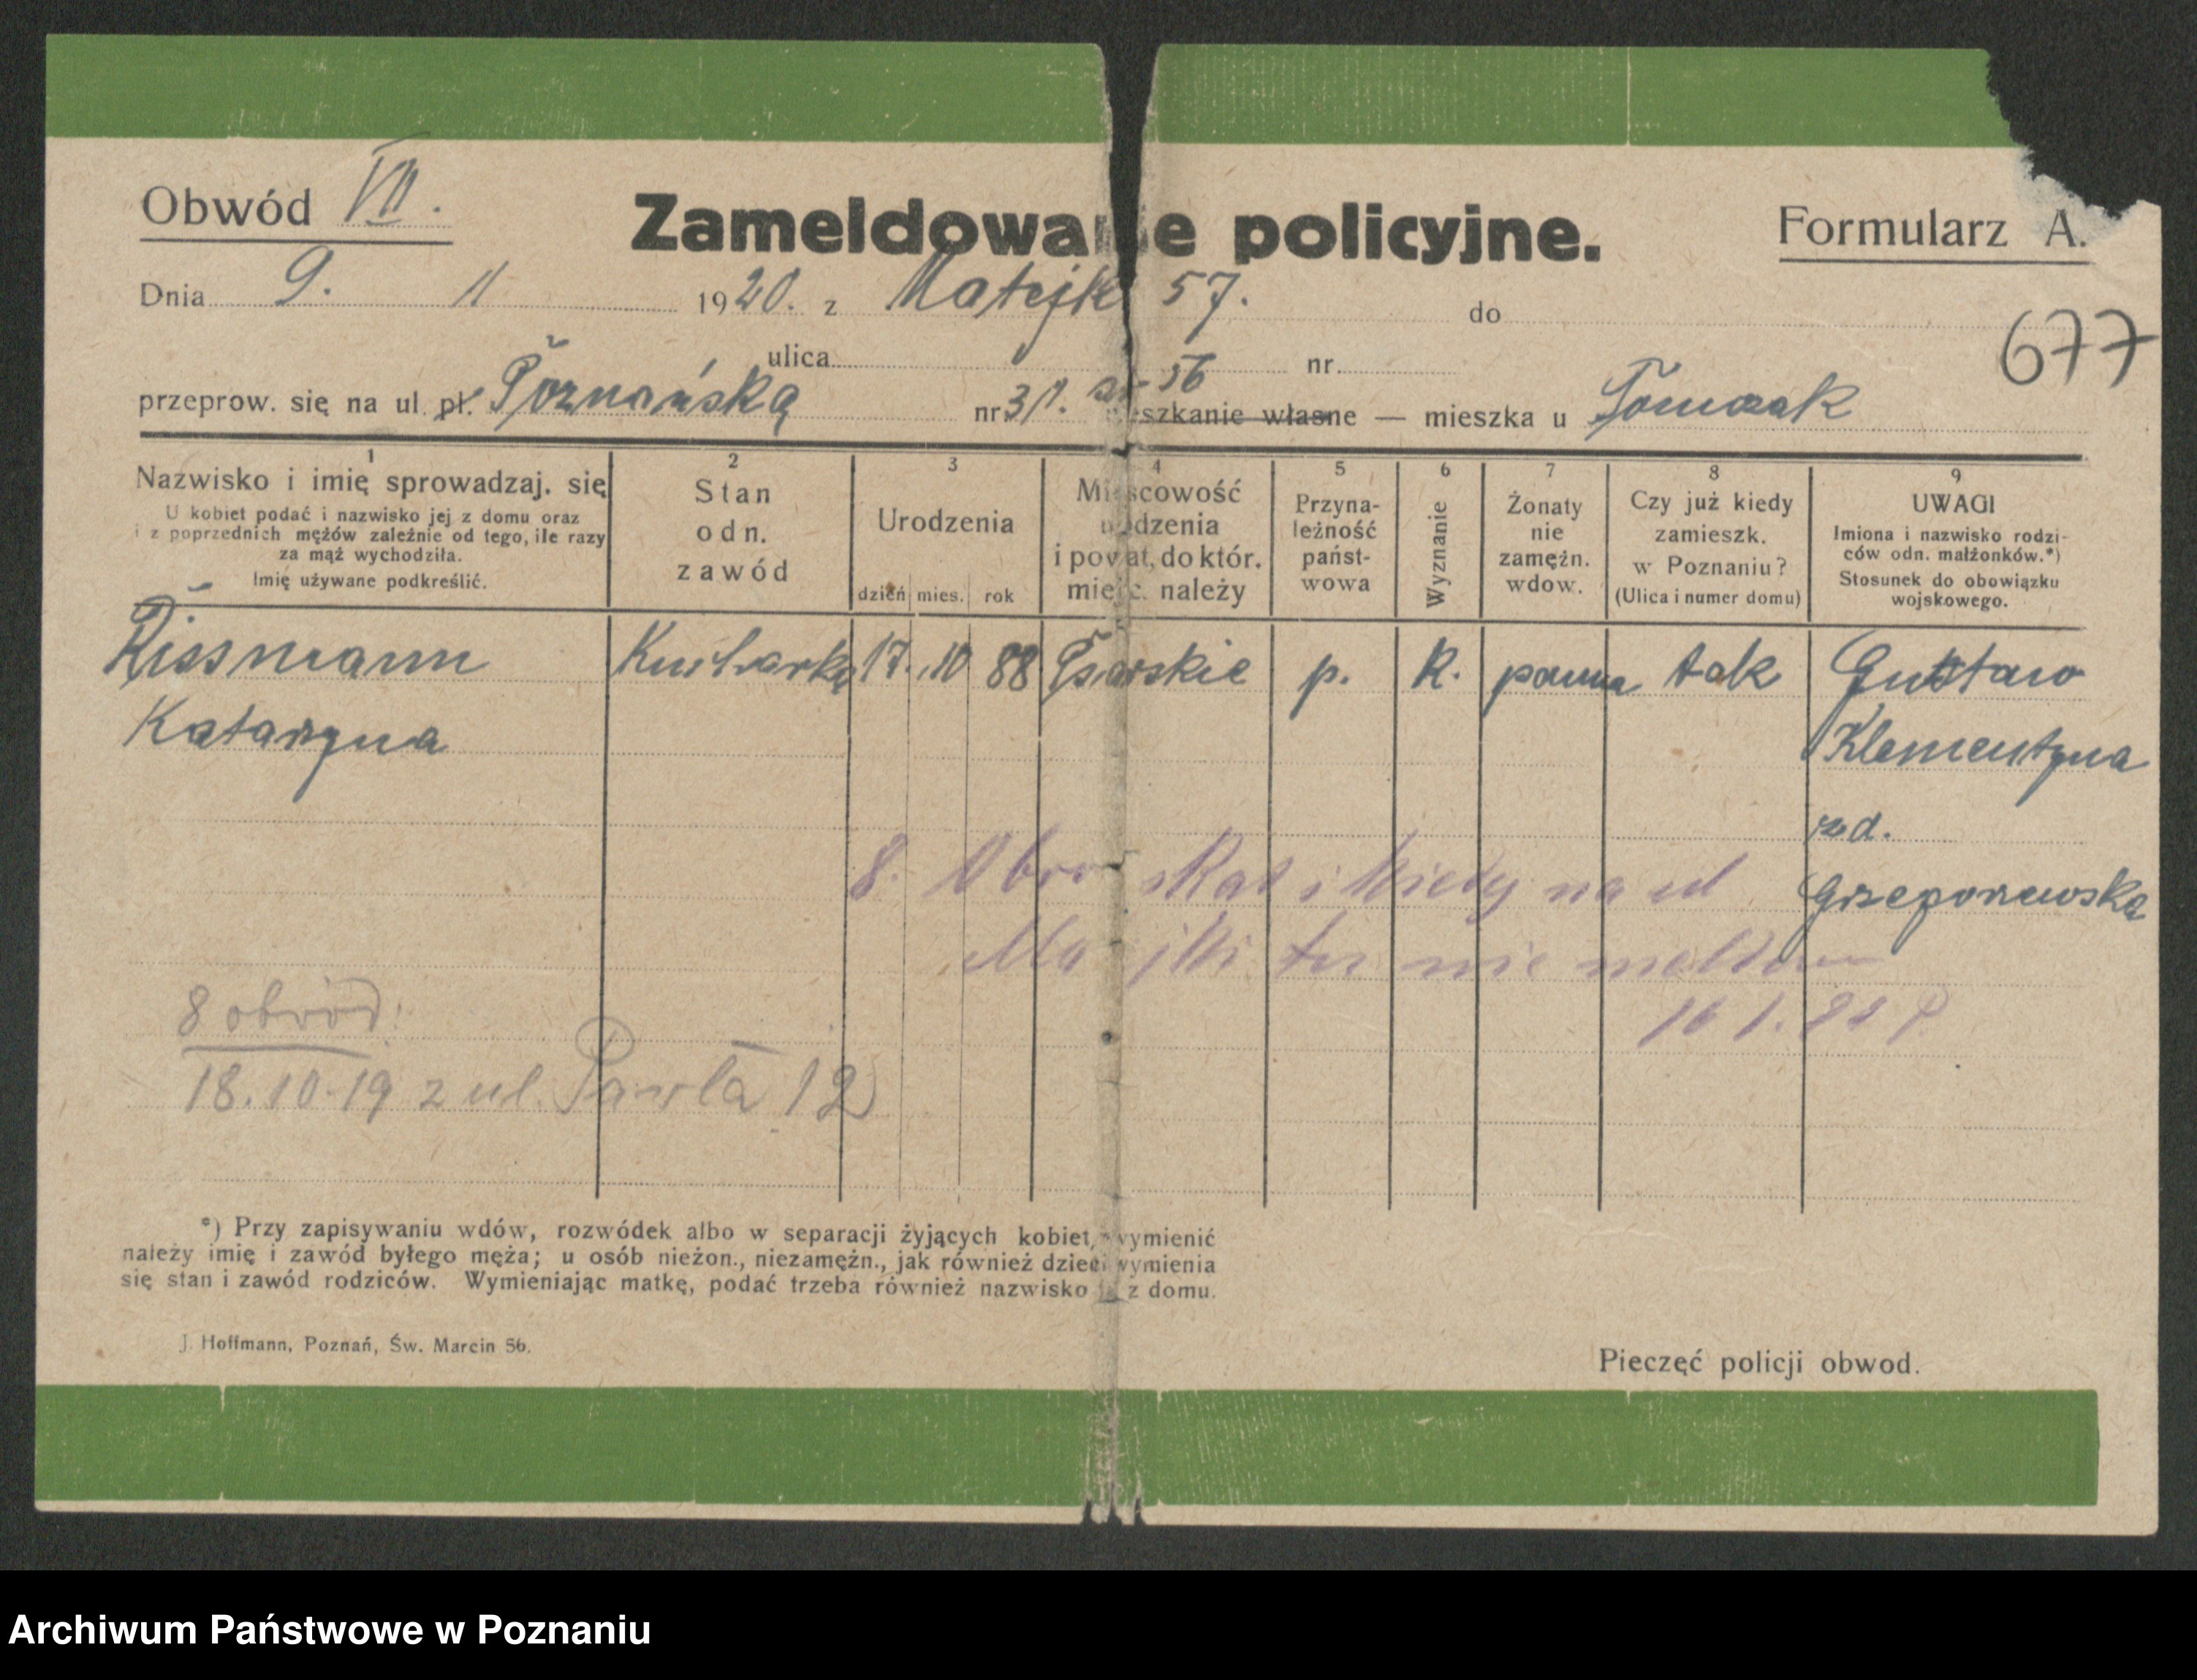 Obwód VII.
Zameldowanie policyjne.
Formularz A.
Dnia 9. 11 1920. z Matejk 57. do
677
ulica nr.
przeprow. się na ul. pl. Poznańską nr 31. 56 mieszkanie własne — mieszka u Tomczak
1 2 3 4 5 6 7 8 9
Nazwisko i imię sprowadzaj. się
U kobiet podać i nazwisko jej z domu oraz
i z poprzednich mężów zależnie od tego, ile razy
za mąż wychodziła.
Imię używane podkreślić.
Stan
odn.
zawód
Urodzenia
dzień mies. rok
Miejscowość
urodzenia
i powiat, do któr.
miejsc. należy
Przyna-
leżność
państ-
wowa
Wyznanie
Żonaty
nie
zamężn.
wdow.
Czy już kiedy
zamieszk.
w Poznaniu?
(Ulica i numer domu)
UWAGI
Imiona i nazwisko rodzi-
ców odn. małżonków.*)
Stosunek do obowiązku
wojskowego.
Rissmann Kucharka 17. 10 88 Psarskie p. K. panna tak Gustaw
Katarzyna Klementyna
zd.
Grzegorzewska
8. Obw skąd i kiedy na ul
Ma jki tu nie meldow
16 1.
8 obwód:
18.10.19 z ul. Pawła 12
*) Przy zapisywaniu wdów, rozwódek albo w separacji żyjących kobiet, wymienić
należy imię i zawód byłego męża; u osób nieżon., niezamężn., jak również dzieci wymienia
się stan i zawód rodziców. Wymieniając matkę, podać trzeba również nazwisko jej z domu.
J. Hoffmann, Poznań, Św. Marcin 56.
Pieczęć policji obwod.
Archiwum Państwowe w Poznaniu